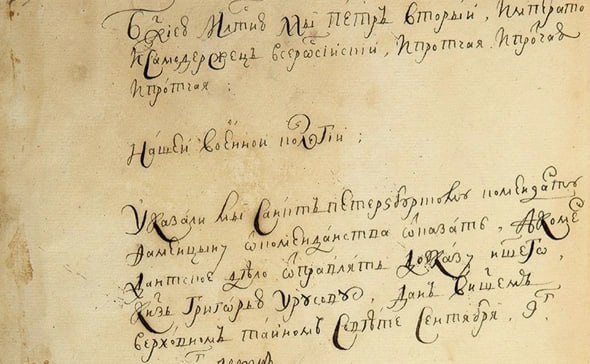 Бж҃иею Млт҃ию Мы Петръ Вторый, Императо
и Самодержецъ всероссійскій, и протчая и протчая
и протчая:
Нашей военной колегіи:
Указали мы Санктъ петерзбургскому коменданту
от комендантства отказать, А коме
дантское дѣло отправлять до указу нашего,
Кнзь Григорью Урусову, данъ в нашемъ
верховномъ тайномъ Советѣ Сентября, 9г